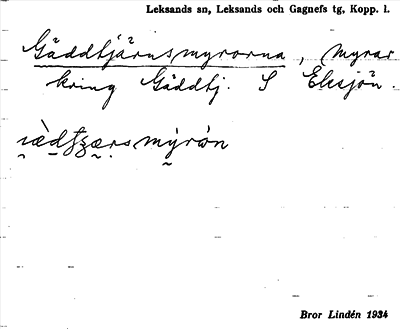 Leksands sn, Leksands och Gagnefs tg, Kopp. l.
Gäddtjärnsmyrorna, myrar
kring Gäddtj. S Elesjön.
Bror Lindén 1934